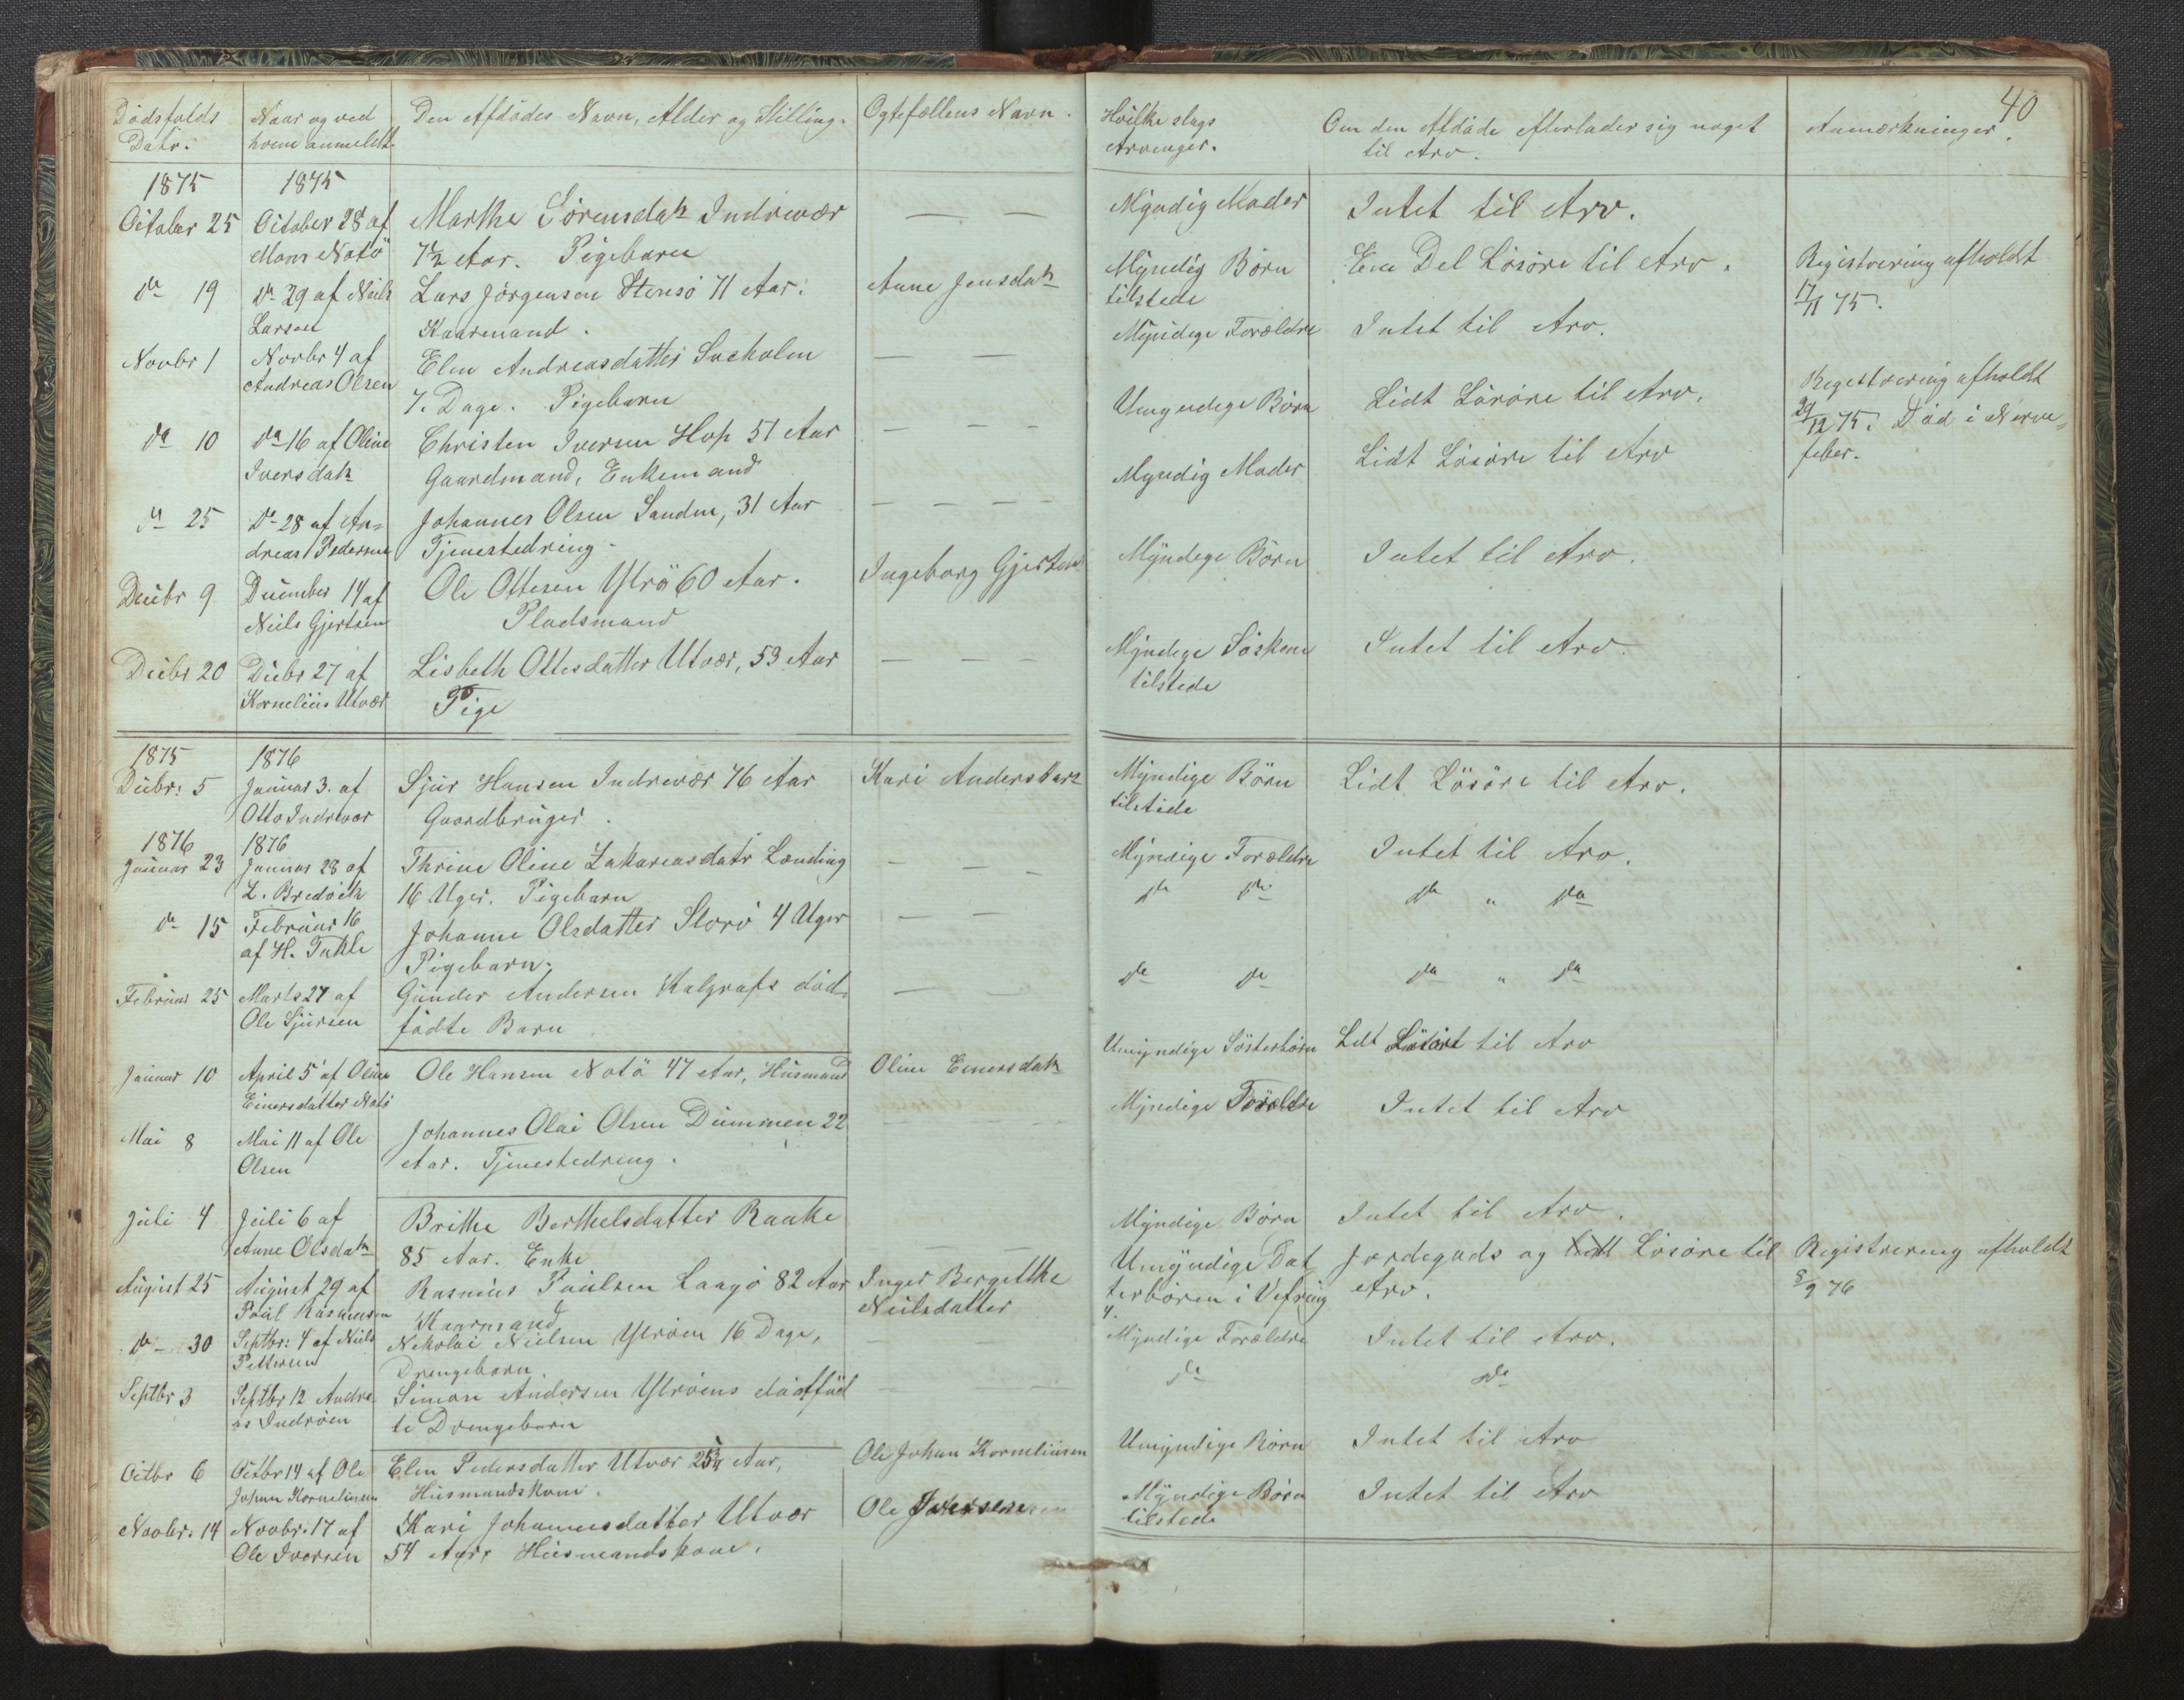 40
Dödsfalds Datr. | Naar og ved hvem anmeldt. | Den Afdödes Navn, Alder og Stilling. | Ogtefællens Navn. | Hvilke slags Arvinger. | Om den Afdöde efterlader sig noget til Arv. | Anmærkninger.
1875 | 1875
October 25 | October 28 af | Marthe Sörensdatr Indrevær | — — | Myndig Moder | Intet til Arv.
Mons Notö | 7½ Aar. Pigebarn
do 19 | do 29 af Niels | Lars Jörgensen Stensö 71 Aar. | Anne Jensdatr | Myndig Börn | En Del Lösöre til Arv. | Registrering afholdt
Larsen | Kaarmand. | tilstede | 17/11 75.
Novbr 1 | Novbr 4 af | Elen Andreasdatter | — — | Myndige Forældre | Intet til Arv.
Andreas Olsen | 7. Dage. Pigebarn
do 10 | do 16 af Oline | Christen Iversen Hop 51 Aar | — — — | Umyndige Börn | Lidt Lösöre til Arv. | Regestrering afholdt
Iversdatr | Gaardmand, Enkemand | 29/12 75. Död i Nerve=
feber.
do 25 | do 28 af An= | Johannes Olsen Sanden, 31 Aar | — — — — | Myndig Moder | Lidt Lösöre til Arv
dreas Pedersen | Tjenestedreng.
Decbr 9 | December 14 af | Ole Ottesen Ytrö 60 Aar. | Ingeborg | Myndige Börn | Intet til Arv.
Niels Gjertsen | Pladsmand
Decbr 20 | Decbr 27 af | Lisbeth Ottesdatter Utvær, 53 Aar | — — — | Myndige Söskene | Intet til Arv.
Kornelius Utvær | Pige | tilstede
1875 | 1876
Decbr. 5 | Januar 3. af | Sjur Hansen Indrevær 76 Aar | Kari Andersdatr | Myndige Börn | Lidt Lösöre til Arv.
Otto Indrevær | Gaardbruger. | tilstede
1876 | 1876
Januar 23 | Januar 28 af | Thrine Oline Zakariasdatr Lending | — — — | Myndige Forældre | Intet til Arv.
Z. Bredvik | 16 Uger. Pigebarn
do 15 | Februar 16 | Johanne Olsdatter Storö 4 Uger | — — | do do | do " do
af H. Tukle | Pigebarn.
Februar 25 | Marts 27 af | Gunder Andersen Kalgrafs död= | — — | do do | do " do
Ole Sjursen | födte Barn
Januar 10 | April 5 af Oline | Ole Hansen Notö 47 Aar, Husmand | Oline Einersdatr | Umyndige Sösterbörn | Lidt Lösöre til Arv
Einersdatter Notö
Mai 8 | Mai 11 af Ole | Johannes Olai Olsen Dummen 22 | — — — | Myndige Forældre | Intet til Arv
Olsen | Aar. Tjenestedreng.
Juli 4 | Juli 6 af | Brithe Berthelsdatter Raake | — — | Myndige Börn | Intet til Arv.
Anne Olsdatr | 85 Aar. Enke
August 25 | August 29 af | Rasmus Paulsen Laagö 82 Aar | Inger Bergitthe | Umyndige Dat | Jordegods og Lidt Lösöre til | Registrering afholdt
Paul Rasmusen | Kaarmand | Neilsdatter | terbören i Vefring | Arv. | 8/9 76
do — 30 | Septbr: 4 af Niels | Nikolai Nielsen Ytröen 16 Dage, | — — | Myndige Forældre | Intet til Arv.
Pettersen | Drengebarn.
Septbr 3 | Septbr 12 Andre | Simon Andersen Ytröens dödföd | — — | do | do
as Indröen | te Drengebarn
Octbr 6 | Octbr 14 af Ole | Elen Pedersdatter Utvær 25¾ Aar, | Ole Johan Korneliusen | Umyndige Börn | Intet til Arv
Johan Korneliusen | Husmandskone.
Novbr. 14 | Novbr. 17 af | Kari Johannesdatter Utvær | Ole Iversen | Myndige Börn | Intet til Arv
Ole Iversen | 54 Aar. Husmandskone. | tilstede